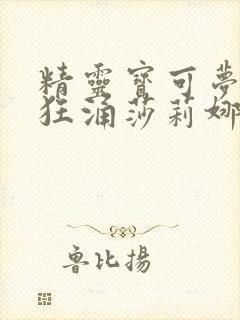 精靈寶可夢
狂涌莎莉娜
魯比揚